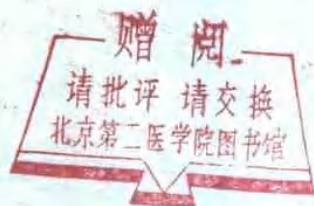 赠阅
请批评 请交换
北京第二医学院图书馆